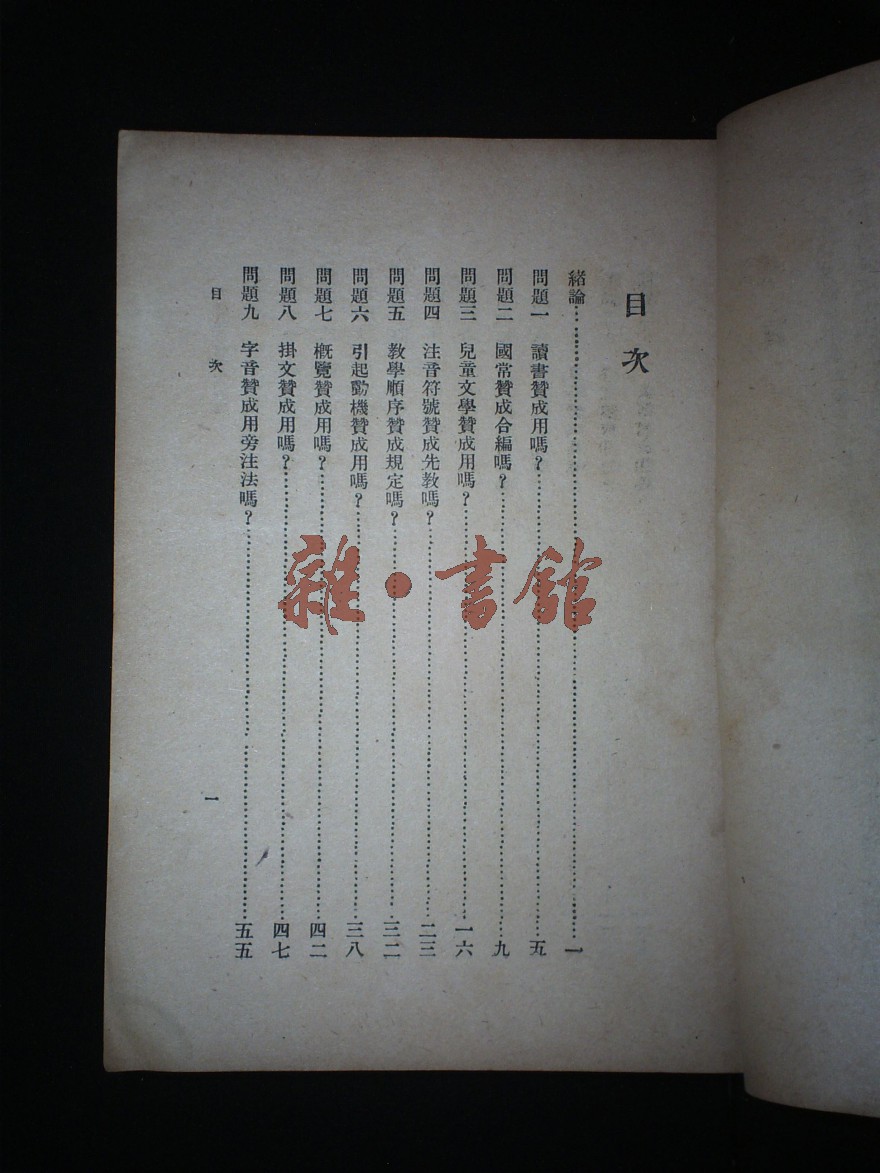 目次
緒論……一
問題一 讀書贊成用嗎？……五
問題二 國常贊成合編嗎？……九
問題三 兒童文學贊成用嗎？……一六
問題四 注音符號贊成先教嗎？……二三
問題五 教學順序贊成規定嗎？……三二
問題六 引起動機贊成用嗎？……三八
問題七 概覽贊成用嗎？……四二
問題八 掛文贊成用嗎？……四七
問題九 字音贊成用旁注法嗎？……五五
目次 一
雜·書館